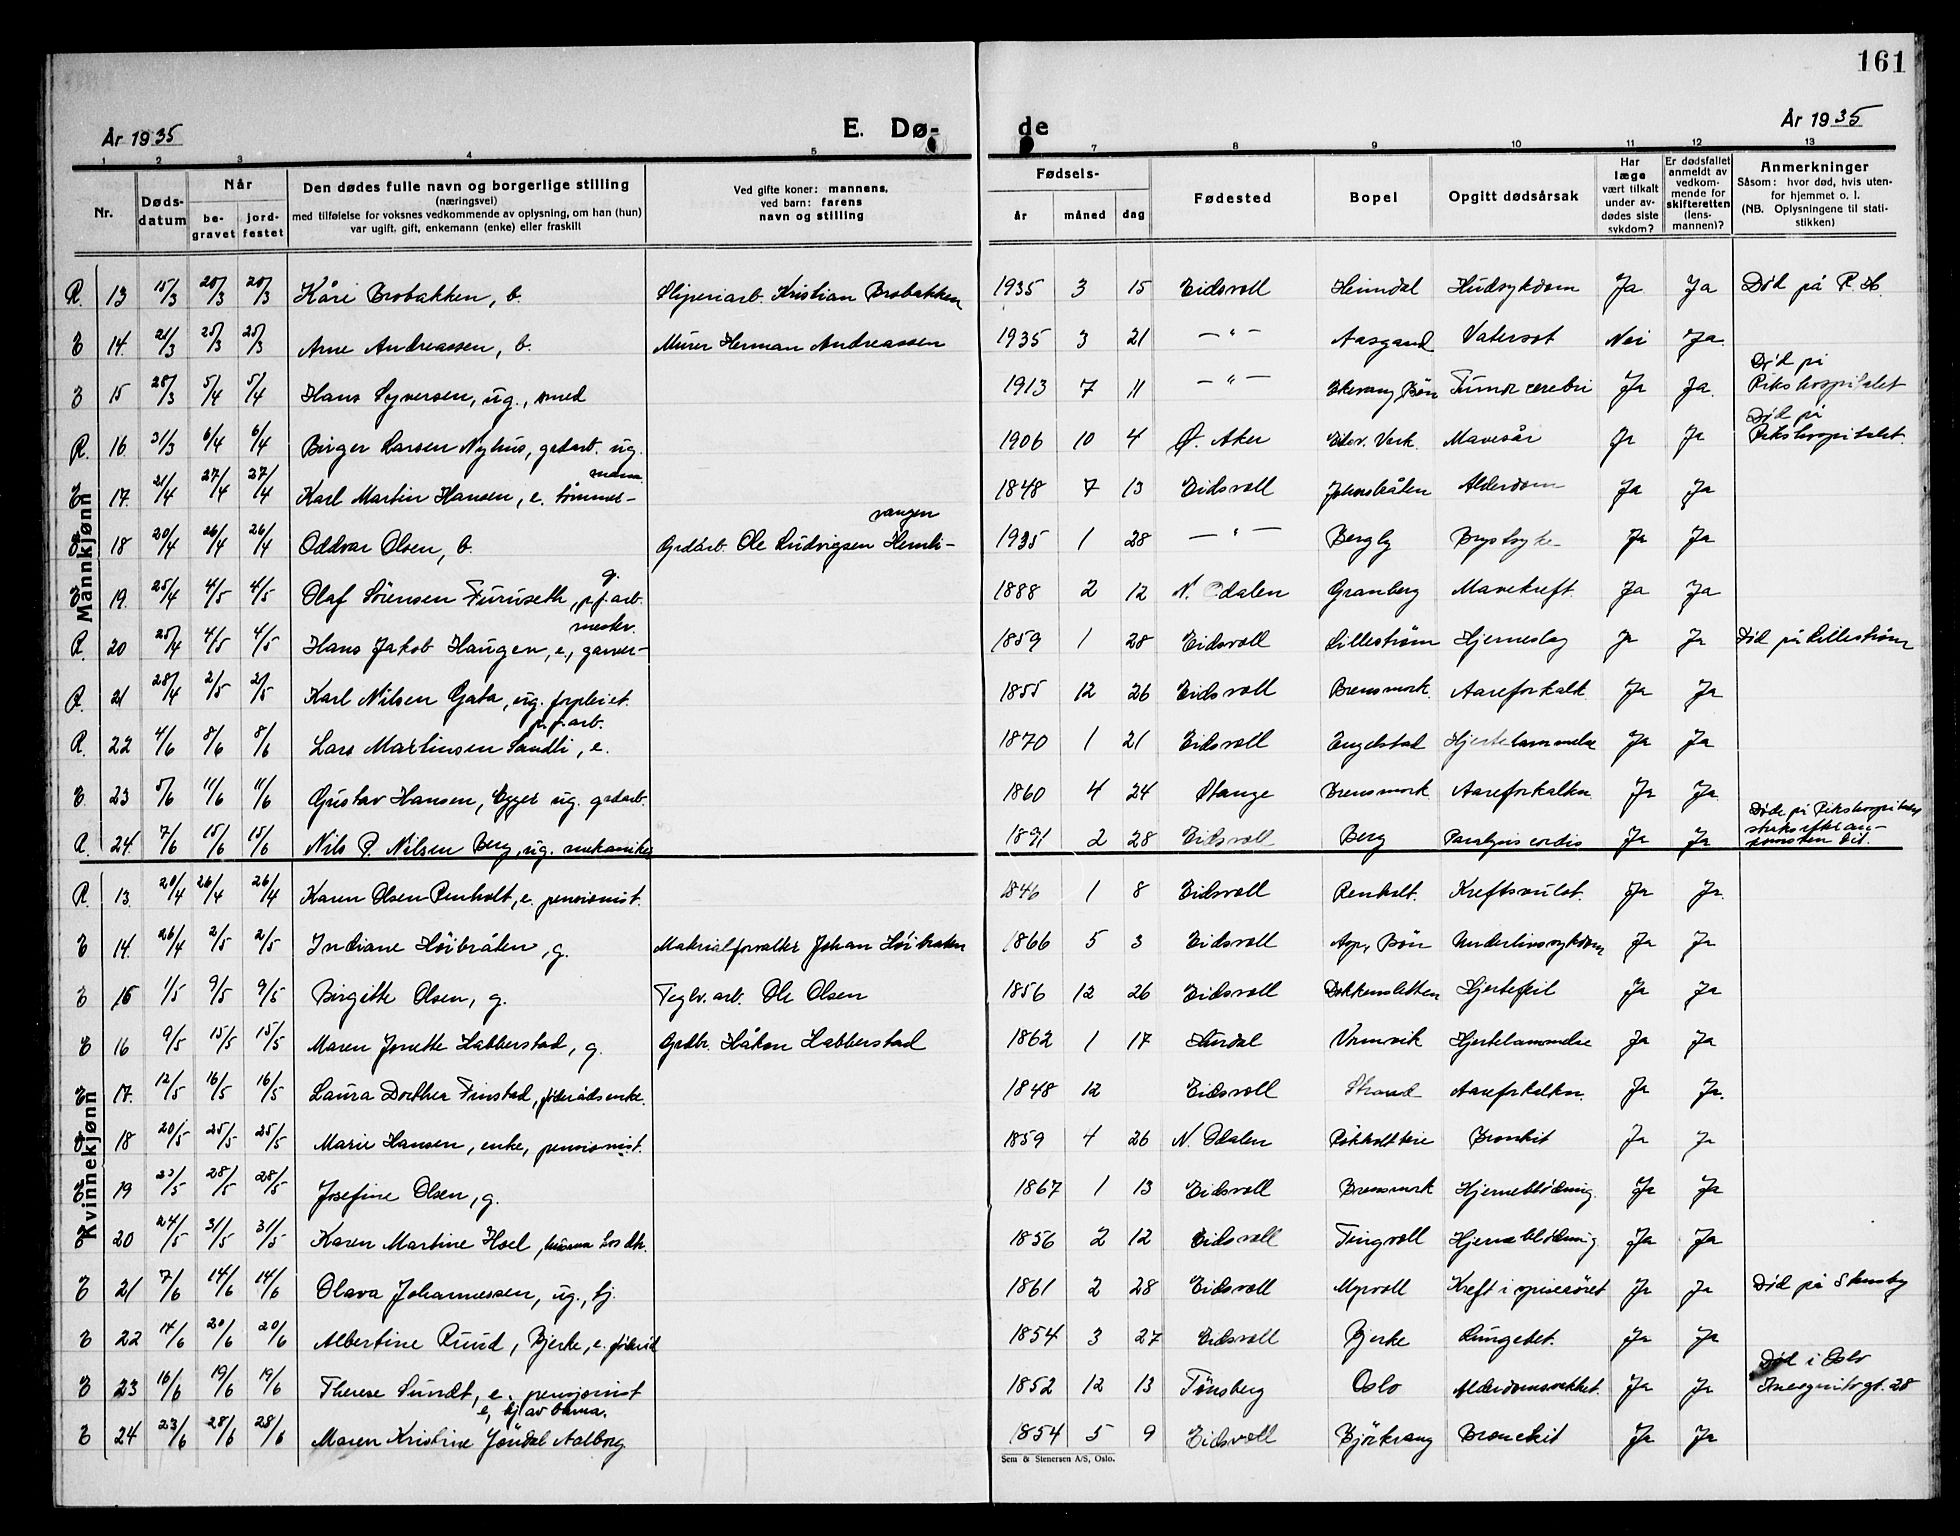 161
År 1935 E. Dø- de År 1935
1 2 3 4 5 7 8 9 10 11 12 13
Nr. Dødsdatum Når begravet jordfestet Den dødes fulle navn og borgerlige stilling (næringsvei) med tilføielse for voksnes vedkommende av oplysning, om han (hun) var ugift, gift, enkemann (enke) eller fraskilt Ved gifte koner: mannens, ved barn: farens navn og stilling Fødsels- år måned dag Fødested Bopel Opgitt dødsårsak Har læge vært tilkalt under avdødes siste sykdom? Er dødsfallet anmeldt av vedkommende for skifteretten (lensmannen)? Anmerkninger Såsom: hvor død, hvis utenfor hjemmet o. l. (NB. Oplysningene til statistikken)
Mannkjønn
R. 13 15/3 20/3 20/3 Kåre Brobakken, b. Sliperiarb. Kristian Brobakken 1935 3 15 Eidsvoll Heimdal Hudsykdom Ja Ja Død på R. H.
E 14. 21/3 25/3 25/3 Arne Andreassen, b. Murer Herman Andreassen 1935 3 21 —"— Aasgaard Vatersot Nei Ja
E 15 28/3 5/4 5/4 Hans Syversen, ug., smed 1913 7 11 —"— Bøn Tumor cerebri Ja Ja. Død på Rikshospitalet
R. 16. 31/3 6/4 6/4 Birger Larsen Nyhus, grdarb. ug. 1906 10 4 Ø. Aker Eidsv. Verk Mavesår Ja Ja Død på Rikshospitalet.
E 17. 21/4 27/4 27/4 Karl Martin Hansen, e. tømmermann 1848 7 13 Eidsvoll Alderdom Ja Ja
E 18 20/4 26/4 26/4 Oddvar Olsen, b. Grdarb. Ole Ludvigsen Hemlivangen 1935 1 28 —"— Bergly Brystsyke Ja Ja
E 19. 25/4 4/5 4/5 Olaf Sørensen Furuseth, p.f. arb. g. 1888 2 12 N. Odalen Granberg Mavekreft. Ja Ja
R. 20 25/4 4/5 4/5 Hans Jakob Haugen, e., garvermester. 1859 1 28 Eidsvoll Lillestrøm Hjerneslag Ja Ja Død på Lillestrøm
R. 21 28/4 2/5 2/5 Karl Nilsen Gata, ug. forpleiet. 1855 12 26 Eidsvoll Brensmork. Aareforkalk Ja Ja
R. 22 4/6 8/6 8/6 Lars Martinsen Sandli, e. p.f. arb. 1870 1 21 Eidsvoll Engelstad Hjertelammelse Ja Ja
E. 23 5/6 11/6 11/6 Gustav Hansen, Egger ug. grdarb. 1860 4 24 Stange Brensmork. Aareforkalkn. Ja Ja.
R. 24. 7/6 15/6 15/6 Nils P. Nilsen Berg, ug. mekaniker 1891 2 28 Eidsvoll Berg Paralysis cordis Ja Ja Døde på Rikshospitalet straks efter ankomsten dit.
Kvinnekjønn
R. 13. 20/4 26/4 26/4 Karen Olsen Renholt, e. pensionist. 1846 1 8 Eidsvoll Renholt. Kreftsvulst. Ja Ja.
E 14. 26/4 2/5 2/5 Indiane Høibråten, g. Materialforvalter Johan Høibråten 1866 5 3 Eidsvoll Bøn Underlivssykdom Ja Ja
E 15 1/5 9/5 9/5 Birgitte Olsen, g. Teglv. arb. Ole Olsen 1856 12 26 Eidsvoll Bakkensletten Hjertefeil Ja Ja
E 16 9/5 15/5 15/5 Maren Jonette Habberstad, g. Grdbr. Håkon Habberstad 1862 1 17 Hurdal Vormvik Hjertelammelse Ja Ja
E 17. 12/5 16/5 16/5 Laura Dorthea Finstad, føderådsenke. 1848 12 Eidsvoll Strand Aareforkalkn. Ja Ja.
E 18 20/5 25/5 25/5 Marie Hansen, enke, pensionist. 1859 4 26 N. Odalen Bronkit Ja Ja
E 19 23/5 28/5 28/5 Josefine Olsen, g. 1867 1 13 Eidsvoll Brensmork Hjerneblødning. Ja Ja
E 20 24/5 31/5 31/5 Karen Martine Hoel, 1856 2 12 Eidsvoll Tingvoll Hjerneblødning Ja Ja
E 21 7/6 14/6 14/6 Olava Johannessen, ug., tj. 1861 2 28 Eidsvoll Myrvoll Kreft i spiserøret Ja Ja Død på Stensby
E 22 14/6 20/6 20/6 Albertine Ruud, Bjerke, e. føderåd 1854 3 27 Eidsvoll Bjerke Lungebet. Ja Ja
E 23 16/6 19/6 19/6 Therese Sundt, e. pensjonist 1852 12 13 Tønsberg Oslo Alderdomssvekket. Ja Ja Død i Oslo
E 24 23/6 28/6 28/6 Maren Kristine Jøndal Aalborg e, tj av barna. 1854 5 9 Eidsvoll Bjørkvang Bronchit Ja Ja
Sem & Stenersen A/S, Oslo.